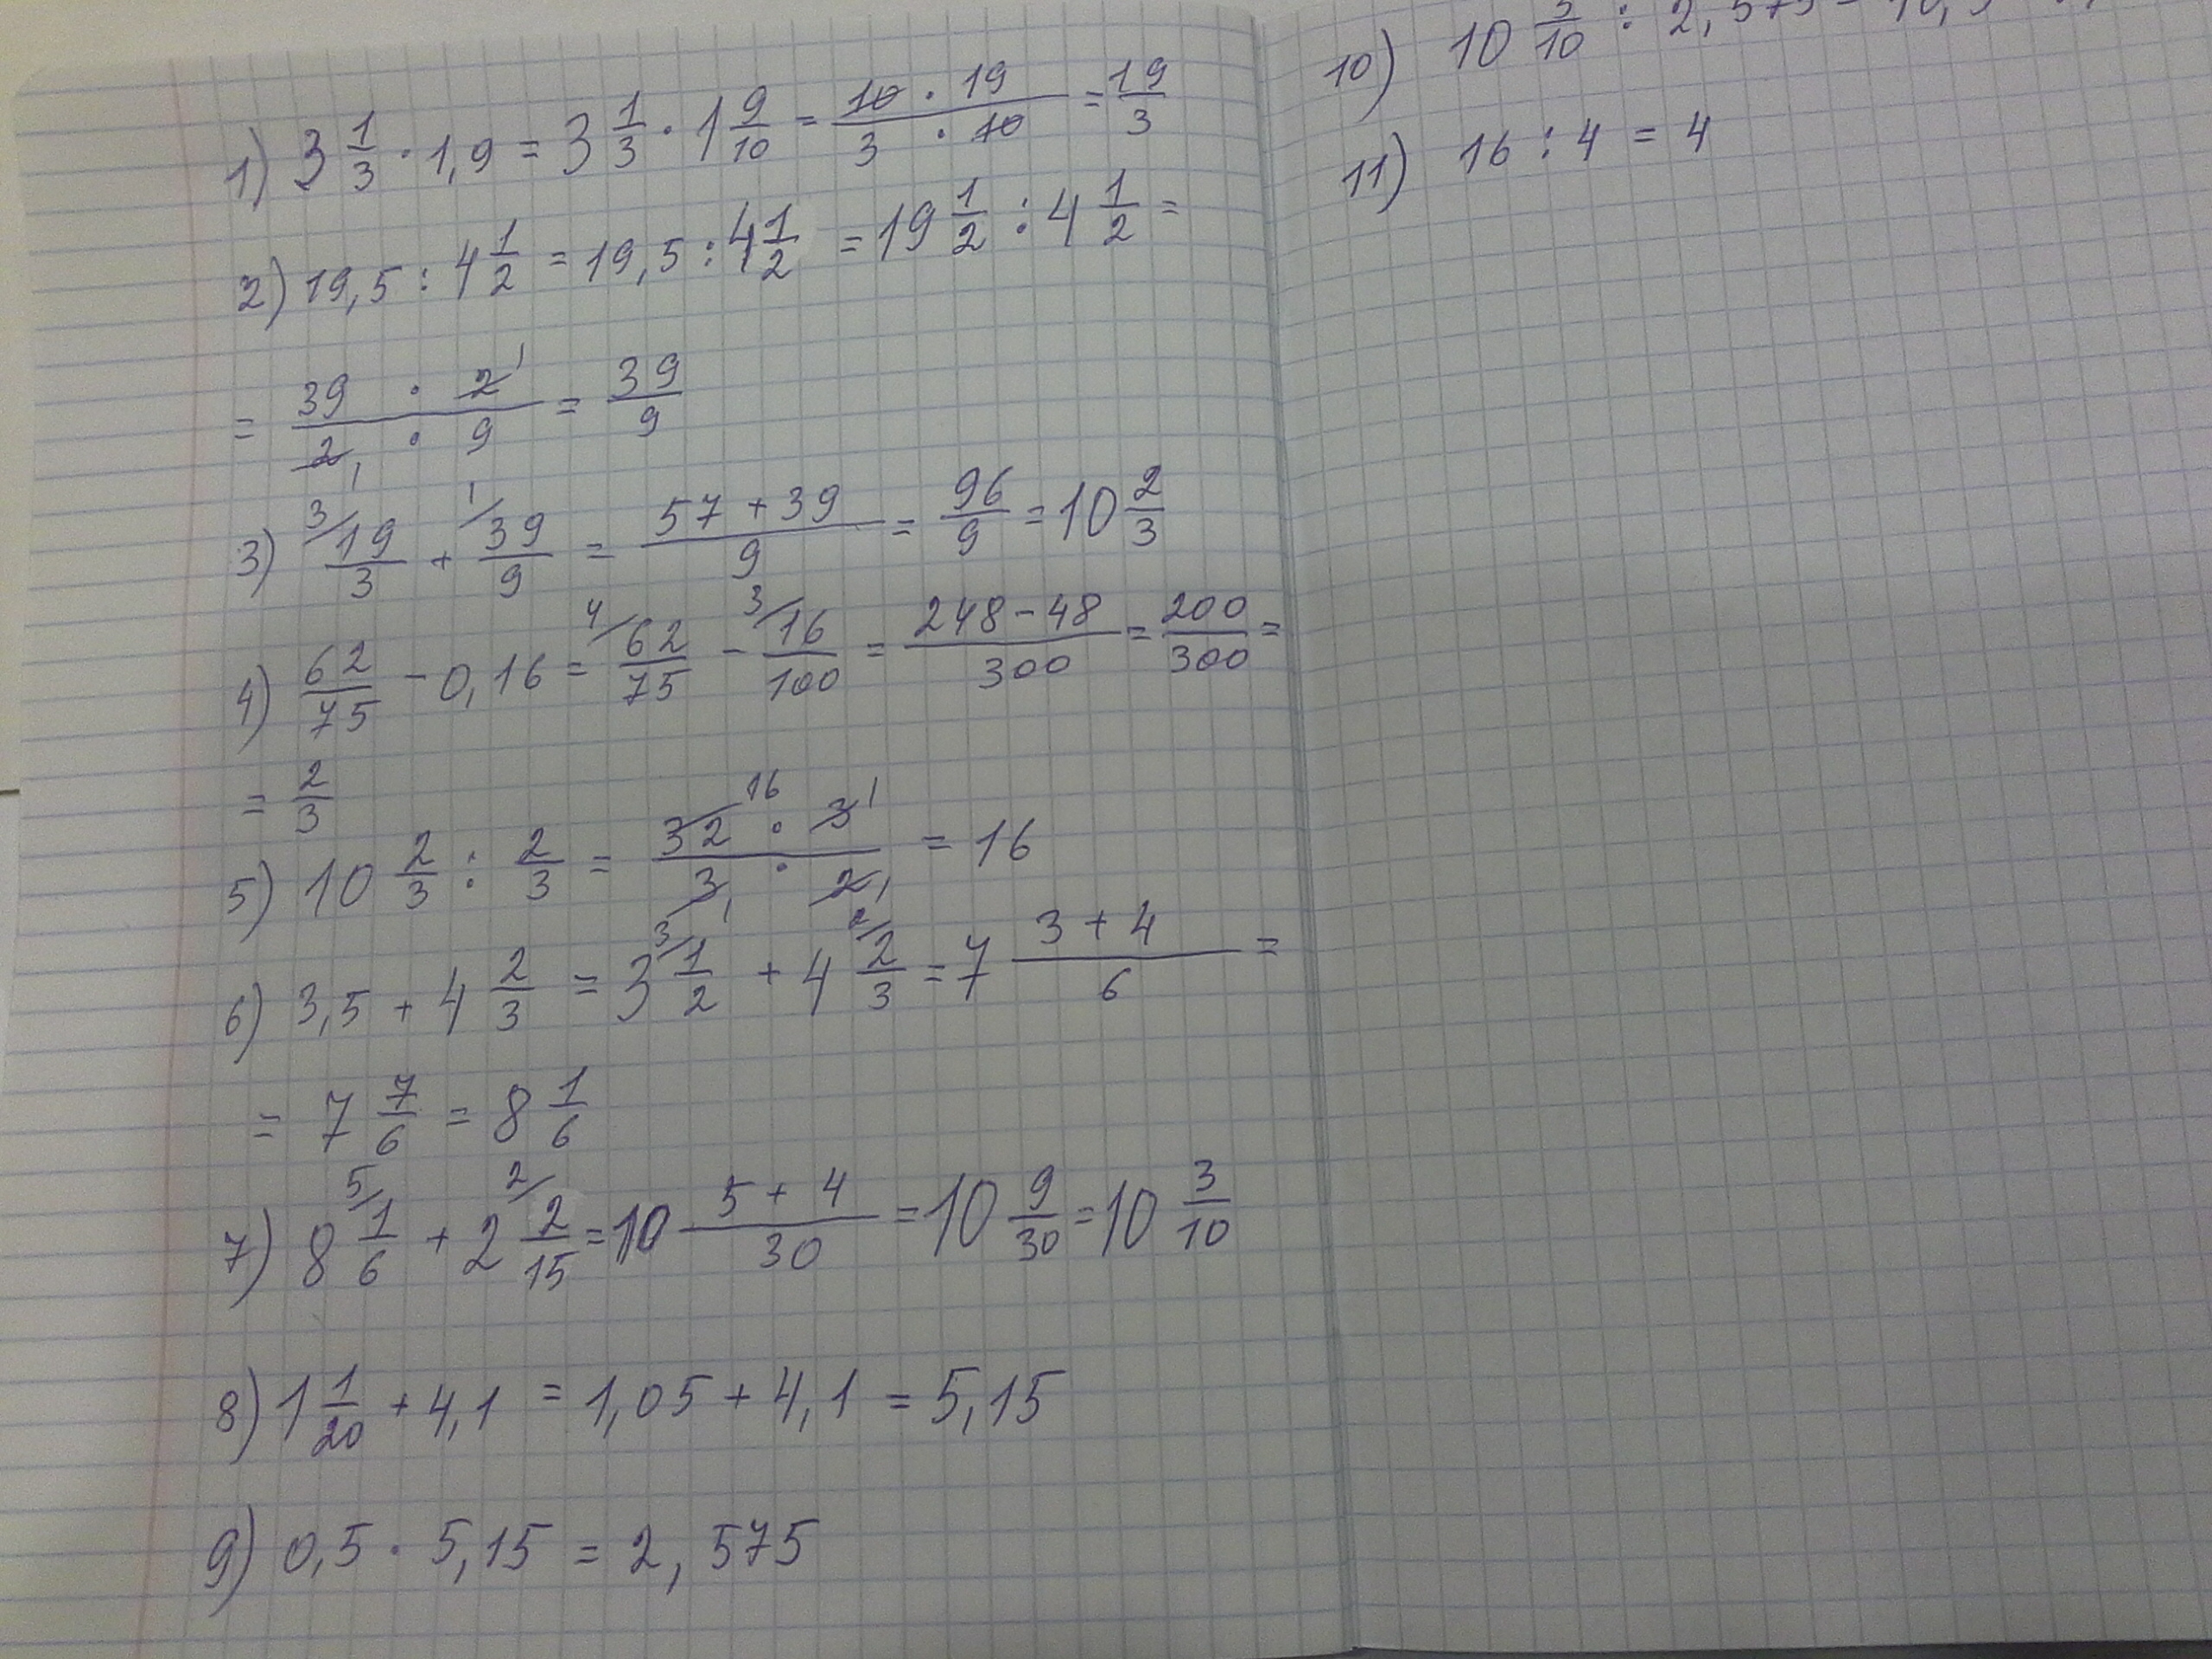 1) 3 1/3 · 1,9 = 3 1/3 · 1 9/10 = (10 · 19)/(3 · 10) = 19/3
2) 19,5 : 4 1/2 = 19,5 : 4 1/2 = 19 1/2 : 4 1/2 =
= (39 · 2 1)/(2 1 · 9) = 39/9
3) 3/ 19/3 + 1/ 39/9 = (57 + 39)/9 = 96/9 = 10 2/3
4) 62/75 - 0,16 = 4/ 62/75 - 3/ 16/100 = (248 - 48)/300 = 200/300 =
= 2/3
5) 10 2/3 : 2/3 = (32 16 · 3 1)/(3 1 · 2 1) = 16
6) 3,5 + 4 2/3 = 3 3/ 1/2 + 4 2/ 2/3 = 7 (3 + 4)/6 =
= 7 7/6 = 8 1/6
7) 8 5/ 1/6 + 2 2/ 2/15 = 10 (5 + 4)/30 = 10 9/30 = 10 3/10
8) 1 1/20 + 4,1 = 1,05 + 4,1 = 5,15
9) 0,5 · 5,15 = 2,575
10) 10 3/10 : 2,575 =
11) 16 : 4 = 4